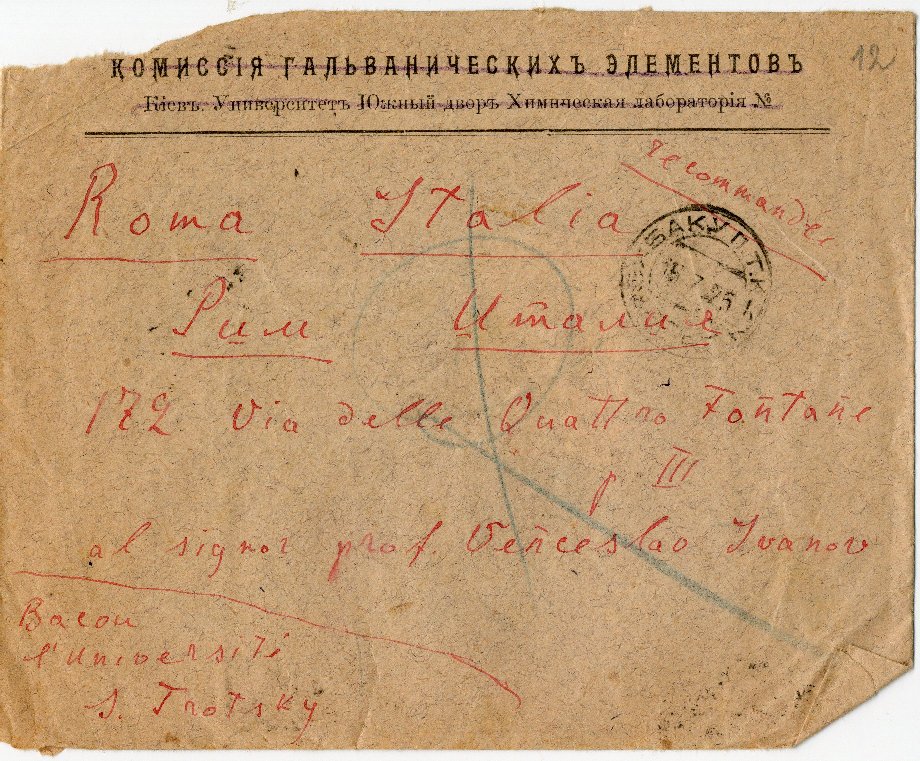 КОМИССІЯ ГАЛЬВАНИЧЕСКИХЪ ЭЛЕМЕНТОВЪ
12
Кіевъ. Университетъ Южный дворъ Химическая лабораторія №
recommandée
Roma Italia
БАКУ П.Т.К.
7 25
Рим Италия
172 Via delle Quattro Fontane
p III
al signor prof. Venceslao Ivanov
Bacou
l'Universiti
S. Trotsky